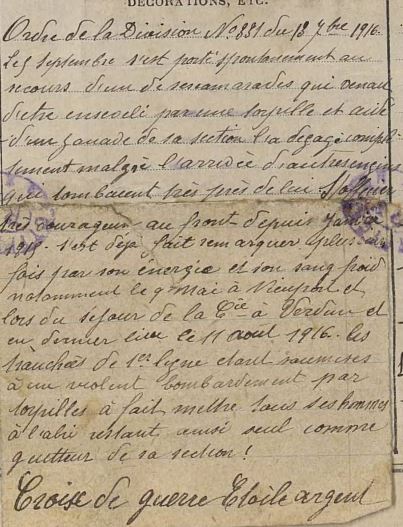 DÉCORATIONS, ETC.
Ordre de la Division No 851 du 13 7bre 1916.
Le 5 septembre s'est porté spontanément au
secours d'un de ses camarades qui venait
d'être enseveli par une torpille et aidé
d'un zouave de sa section l'a dégagé compl-
tement malgré l'arrivée d'autres engins
qui tombaient très près de lui.
très courageux au front depuis janvier
1915. s'est déjà fait remarquer plusieurs
fois par son énergie et son sang froid
notamment le 9 mai à Nieuport et
lors du séjour de la Cie à Verdun et
en dernier lieu le 11 août 1916. les
tranchés de 1ère ligne étant soumises
à un violent bombardement par
torpilles à fait mettre tous ses hommes
à l'abri restant ainsi seul comme
guetteur de sa section !
Croix de guerre Etoile argent